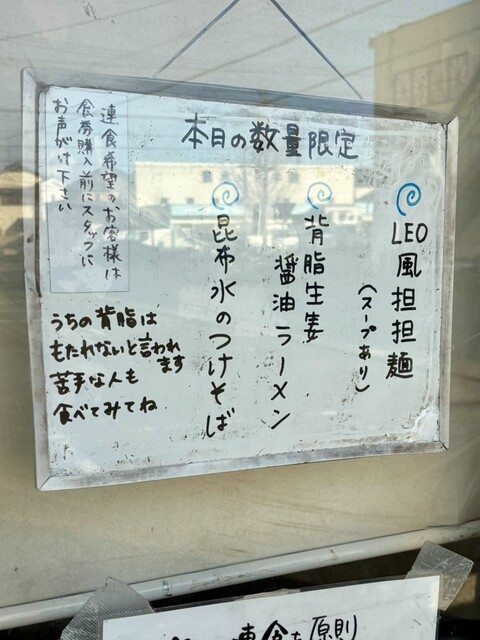 本日の数量限定
LEO風担担麺
(スープあり)
背脂生姜
醤油ラーメン
昆布水のつけそば
連食希望のお客様は
食券購入前にスタッフに
お声がけ下さい
うちの背脂は
もたれないと言われ
ます
苦手な人も
食べてみてね
連食は原則